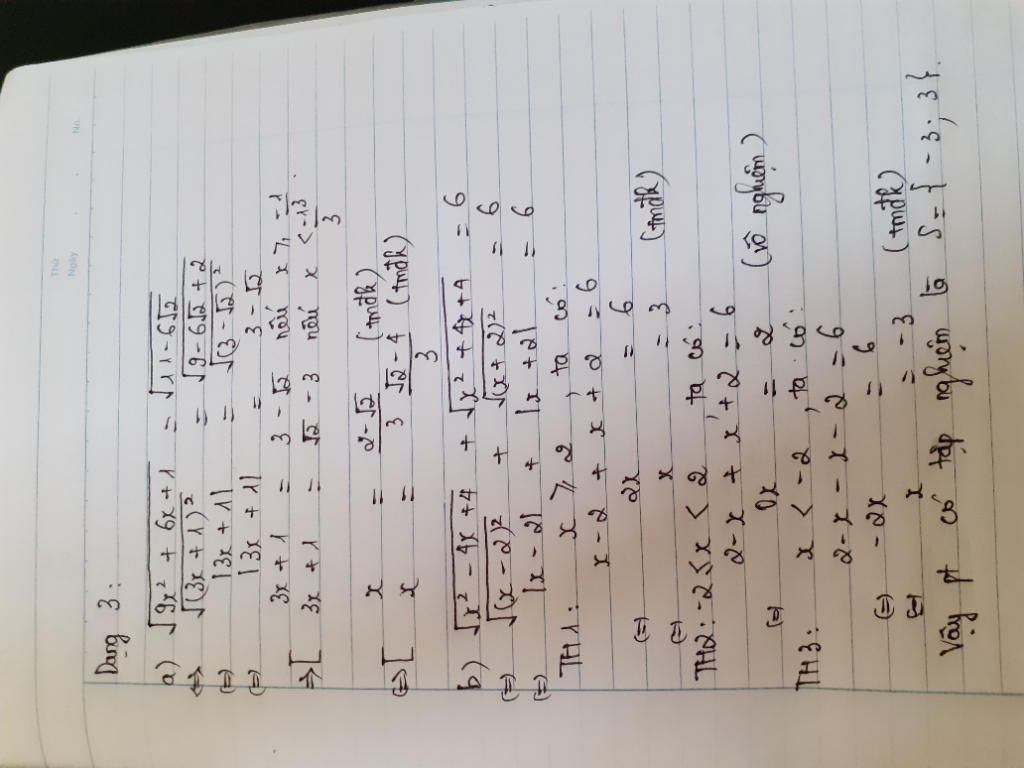 Thứ
Ngày No.
Dạng 3:
a) √(9x² + 6x + 1) = √(11 - 6√2)
⇔ √((3x + 1)²) = √(9 - 6√2 + 2)
(=) |3x + 1| = √((3 - √2)²)
(=) |3x + 1| = 3 - √2
3x + 1 = 3 - √2 nếu x ≥ -1/3
=> [ 3x + 1 = √2 - 3 nếu x < -1/3.
x = (2 - √2)/3 (tmđk)
(=) [ x = (√2 - 4)/3 (tmđk)
b) √(x² - 4x + 4) + √(x² + 4x + 4) = 6
(=) √((x - 2)²) + √((x + 2)²) = 6
(=) |x - 2| + |x + 2| = 6
TH1: x ≥ 2, ta có:
x - 2 + x + 2 = 6
(=) 2x = 6
(=) x = 3 (tmđk)
TH2: -2 ≤ x < 2, ta có:
2 - x + x + 2 = 6
(=) 0x = 2 (vô nghiệm)
TH3: x < -2, ta có:
2 - x - x - 2 = 6
(=) -2x = 6
(=) x = -3 (tmđk)
Vậy pt có tập nghiệm là S = {-3; 3}.